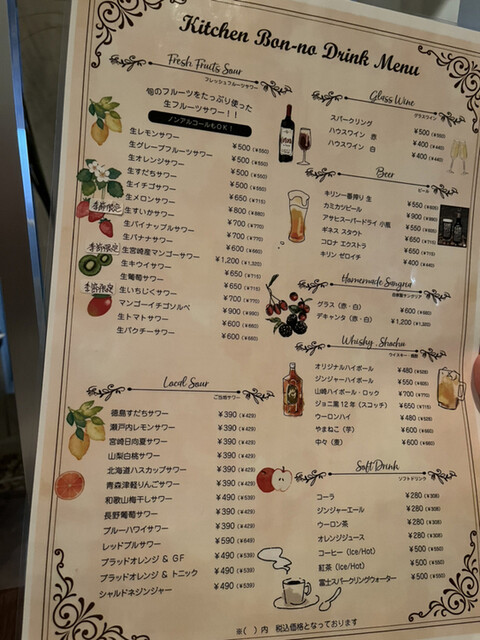 Kitchen Bon-no Drink Menu
Fresh Fruits Sour
フレッシュフルーツサワー
旬のフルーツをたっぷり使った
生フルーツサワー！！
ノンアルコールもOK！
生レモンサワー ¥500 (¥550)
生グレープフルーツサワー ¥500 (¥550)
生オレンジサワー ¥500 (¥550)
生すだちサワー ¥500 (¥550)
生イチゴサワー ¥650 (¥715)
生メロンサワー ¥800 (¥880)
季節限定 生すいかサワー ¥700 (¥770)
生パイナップルサワー ¥700 (¥770)
生バナナサワー ¥600 (¥660)
季節限定 生宮崎産マンゴーサワー ¥1,200 (¥1,320)
生キウイサワー ¥650 (¥715)
生葡萄サワー ¥650 (¥715)
季節限定 生いちじくサワー ¥700 (¥770)
マンゴーイチゴソルベ ¥900 (¥990)
生トマトサワー ¥600 (¥660)
生パクチーサワー ¥600 (¥660)
Local Sour
ご当地サワー
徳島すだちサワー ¥390 (¥429)
瀬戸内レモンサワー ¥390 (¥429)
宮崎日向夏サワー ¥390 (¥429)
山梨白桃サワー ¥390 (¥429)
北海道ハスカップサワー ¥390 (¥429)
青森津軽りんごサワー ¥490 (¥539)
和歌山梅干しサワー ¥490 (¥539)
長野葡萄サワー ¥390 (¥429)
ブルーハワイサワー ¥390 (¥429)
レッドブルサワー ¥590 (¥649)
ブラッドオレンジ & GF ¥490 (¥539)
ブラッドオレンジ & トニック ¥490 (¥539)
シャルドネジンジャー ¥490 (¥539)
Glass Wine
グラスワイン
スパークリング ¥500 (¥550)
ハウスワイン 赤 ¥400 (¥440)
ハウスワイン 白 ¥400 (¥440)
Beer
ビール
キリン一番搾り 生 ¥550 (¥605)
カミカツビール ¥900 (¥990)
アサヒスーパードライ 小瓶 ¥500 (¥550)
ギネス スタウト ¥650 (¥715)
コロナ エクストラ ¥650 (¥715)
キリン ゼロイチ ¥400 (¥440)
Homemade Sangria
自家製サングリア
グラス (赤・白) ¥600 (¥660)
デキャンタ (赤・白) ¥1,200 (¥1,320)
Whisky . Shochu
ウイスキー・焼酎
オリジナルハイボール ¥480 (¥528)
ジンジャーハイボール ¥550 (¥605)
山崎ハイボール・ロック ¥700 (¥770)
ジョニ黒12年 (スコッチ) ¥650 (¥715)
ウーロンハイ ¥480 (¥528)
やまねこ (芋) ¥600 (¥660)
中々 (麦) ¥600 (¥660)
Soft Drink
ソフトドリンク
コーラ ¥280 (¥308)
ジンジャーエール ¥280 (¥308)
ウーロン茶 ¥280 (¥308)
オレンジジュース ¥280 (¥308)
コーヒー (Ice/Hot) ¥500 (¥550)
紅茶 (Ice/Hot) ¥500 (¥550)
富士スパークリングウォーター ¥500 (¥550)
※( ) 内 税込価格となっております